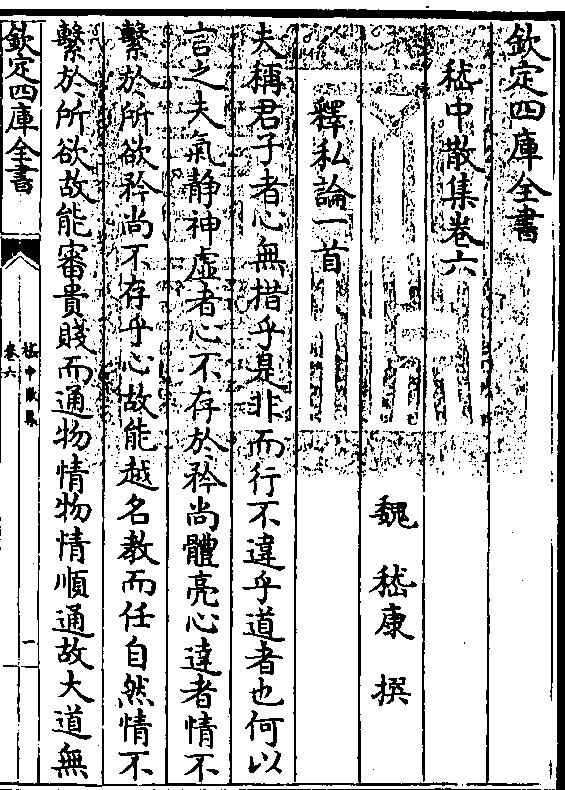 欽定四庫全書
嵇中散集卷六
魏 嵇康 撰
釋私論一首
夫稱君子者心無措乎是非而行不違乎道者也何以
言之夫氣静神虚者心不存於矜尚體亮心達者情不
繫於所欲矜尚不存乎心故能越名教而任自然情不
繫於所欲故能審貴賤而通物情物情順通故大道無
欽定四庫全書
嵇中散集
卷六
一